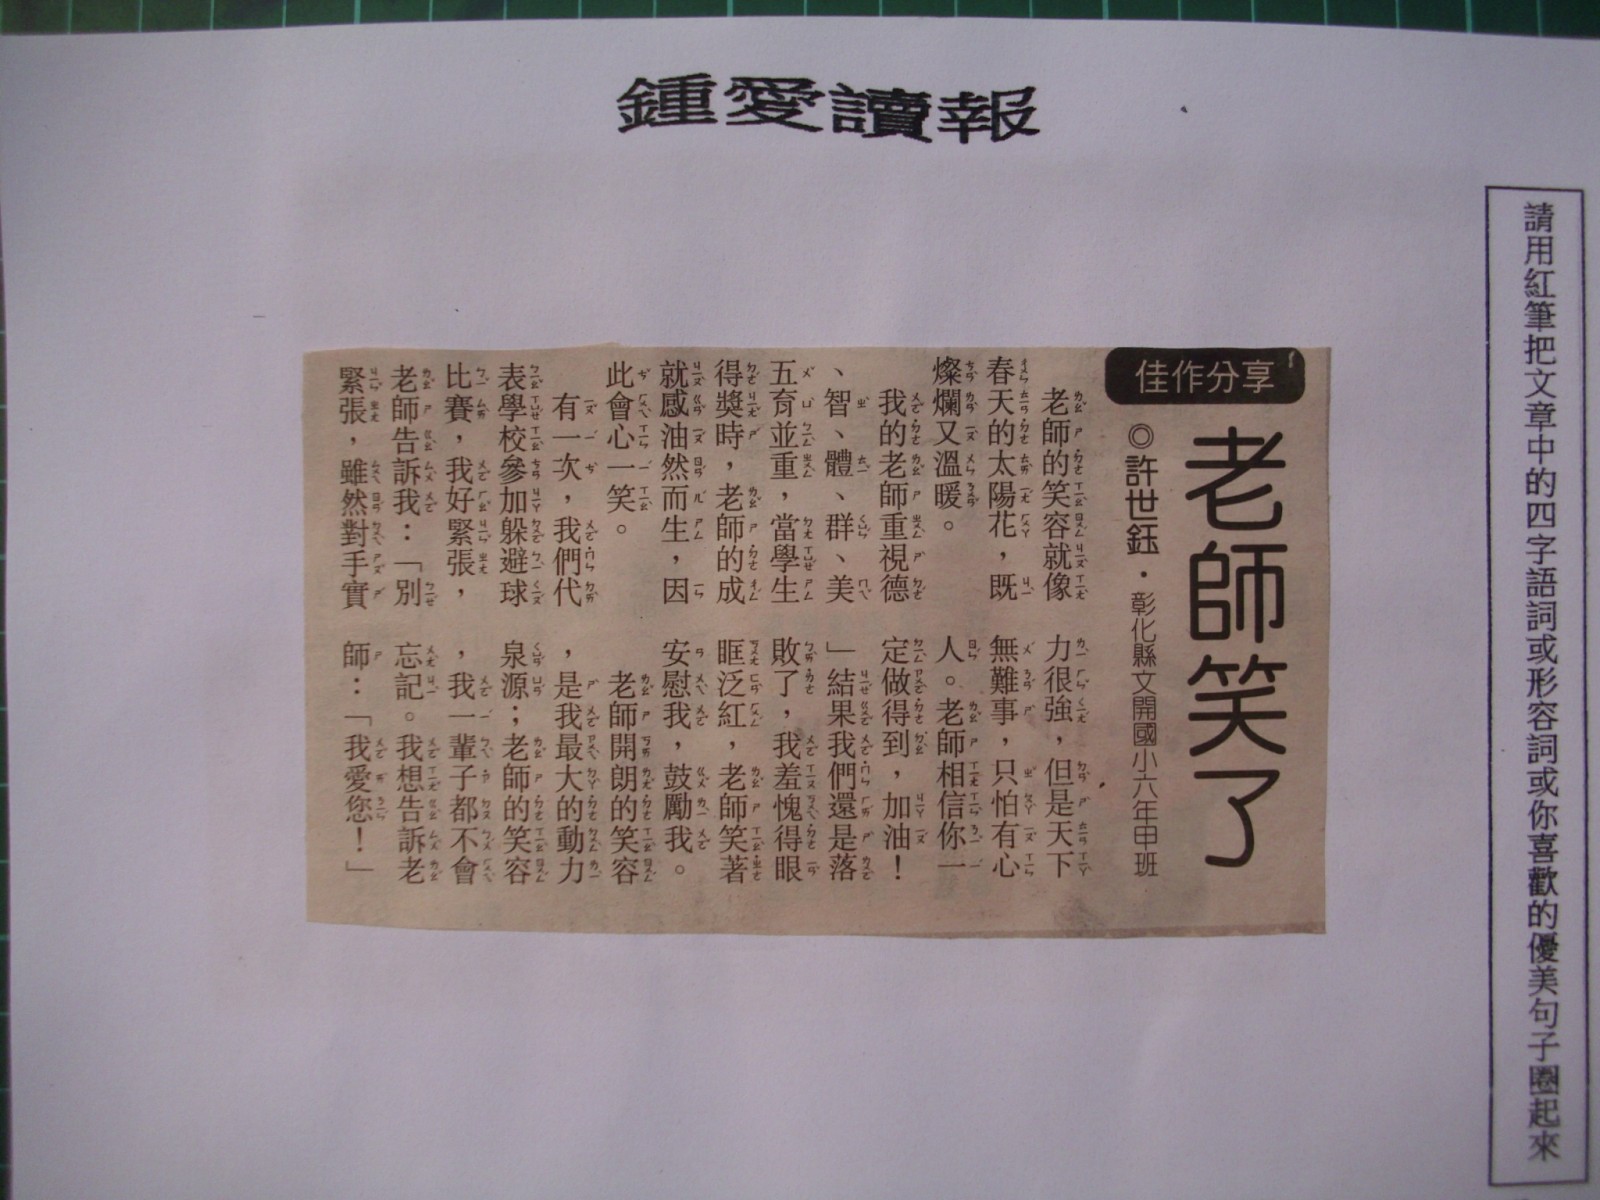 鍾愛讀報
請用紅筆把文章中的四字語詞或形容詞或你喜歡的優美句子圈起來
佳作分享
老師笑了
◎許世鈺・彰化縣文開國小六年甲班
老師的笑容就像
春天的太陽花，既
燦爛又溫暖。
我的老師重視德
、智、體、群、美
五育並重，當學生
得獎時，老師的成
就感油然而生，因
此會心一笑。
有一次，我們代
表學校參加躲避球
比賽，我好緊張，
老師告訴我：「別
緊張，雖然對手實
力很強，但是天下
無難事，只怕有心
人。老師相信你一
定做得到，加油！
」結果我們還是落
敗了，我羞愧得眼
眶泛紅，老師笑著
安慰我，鼓勵我。
老師開朗的笑容
，是我最大的動力
泉源；老師的笑容
，我一輩子都不會
忘記。我想告訴老
師：「我愛您！」